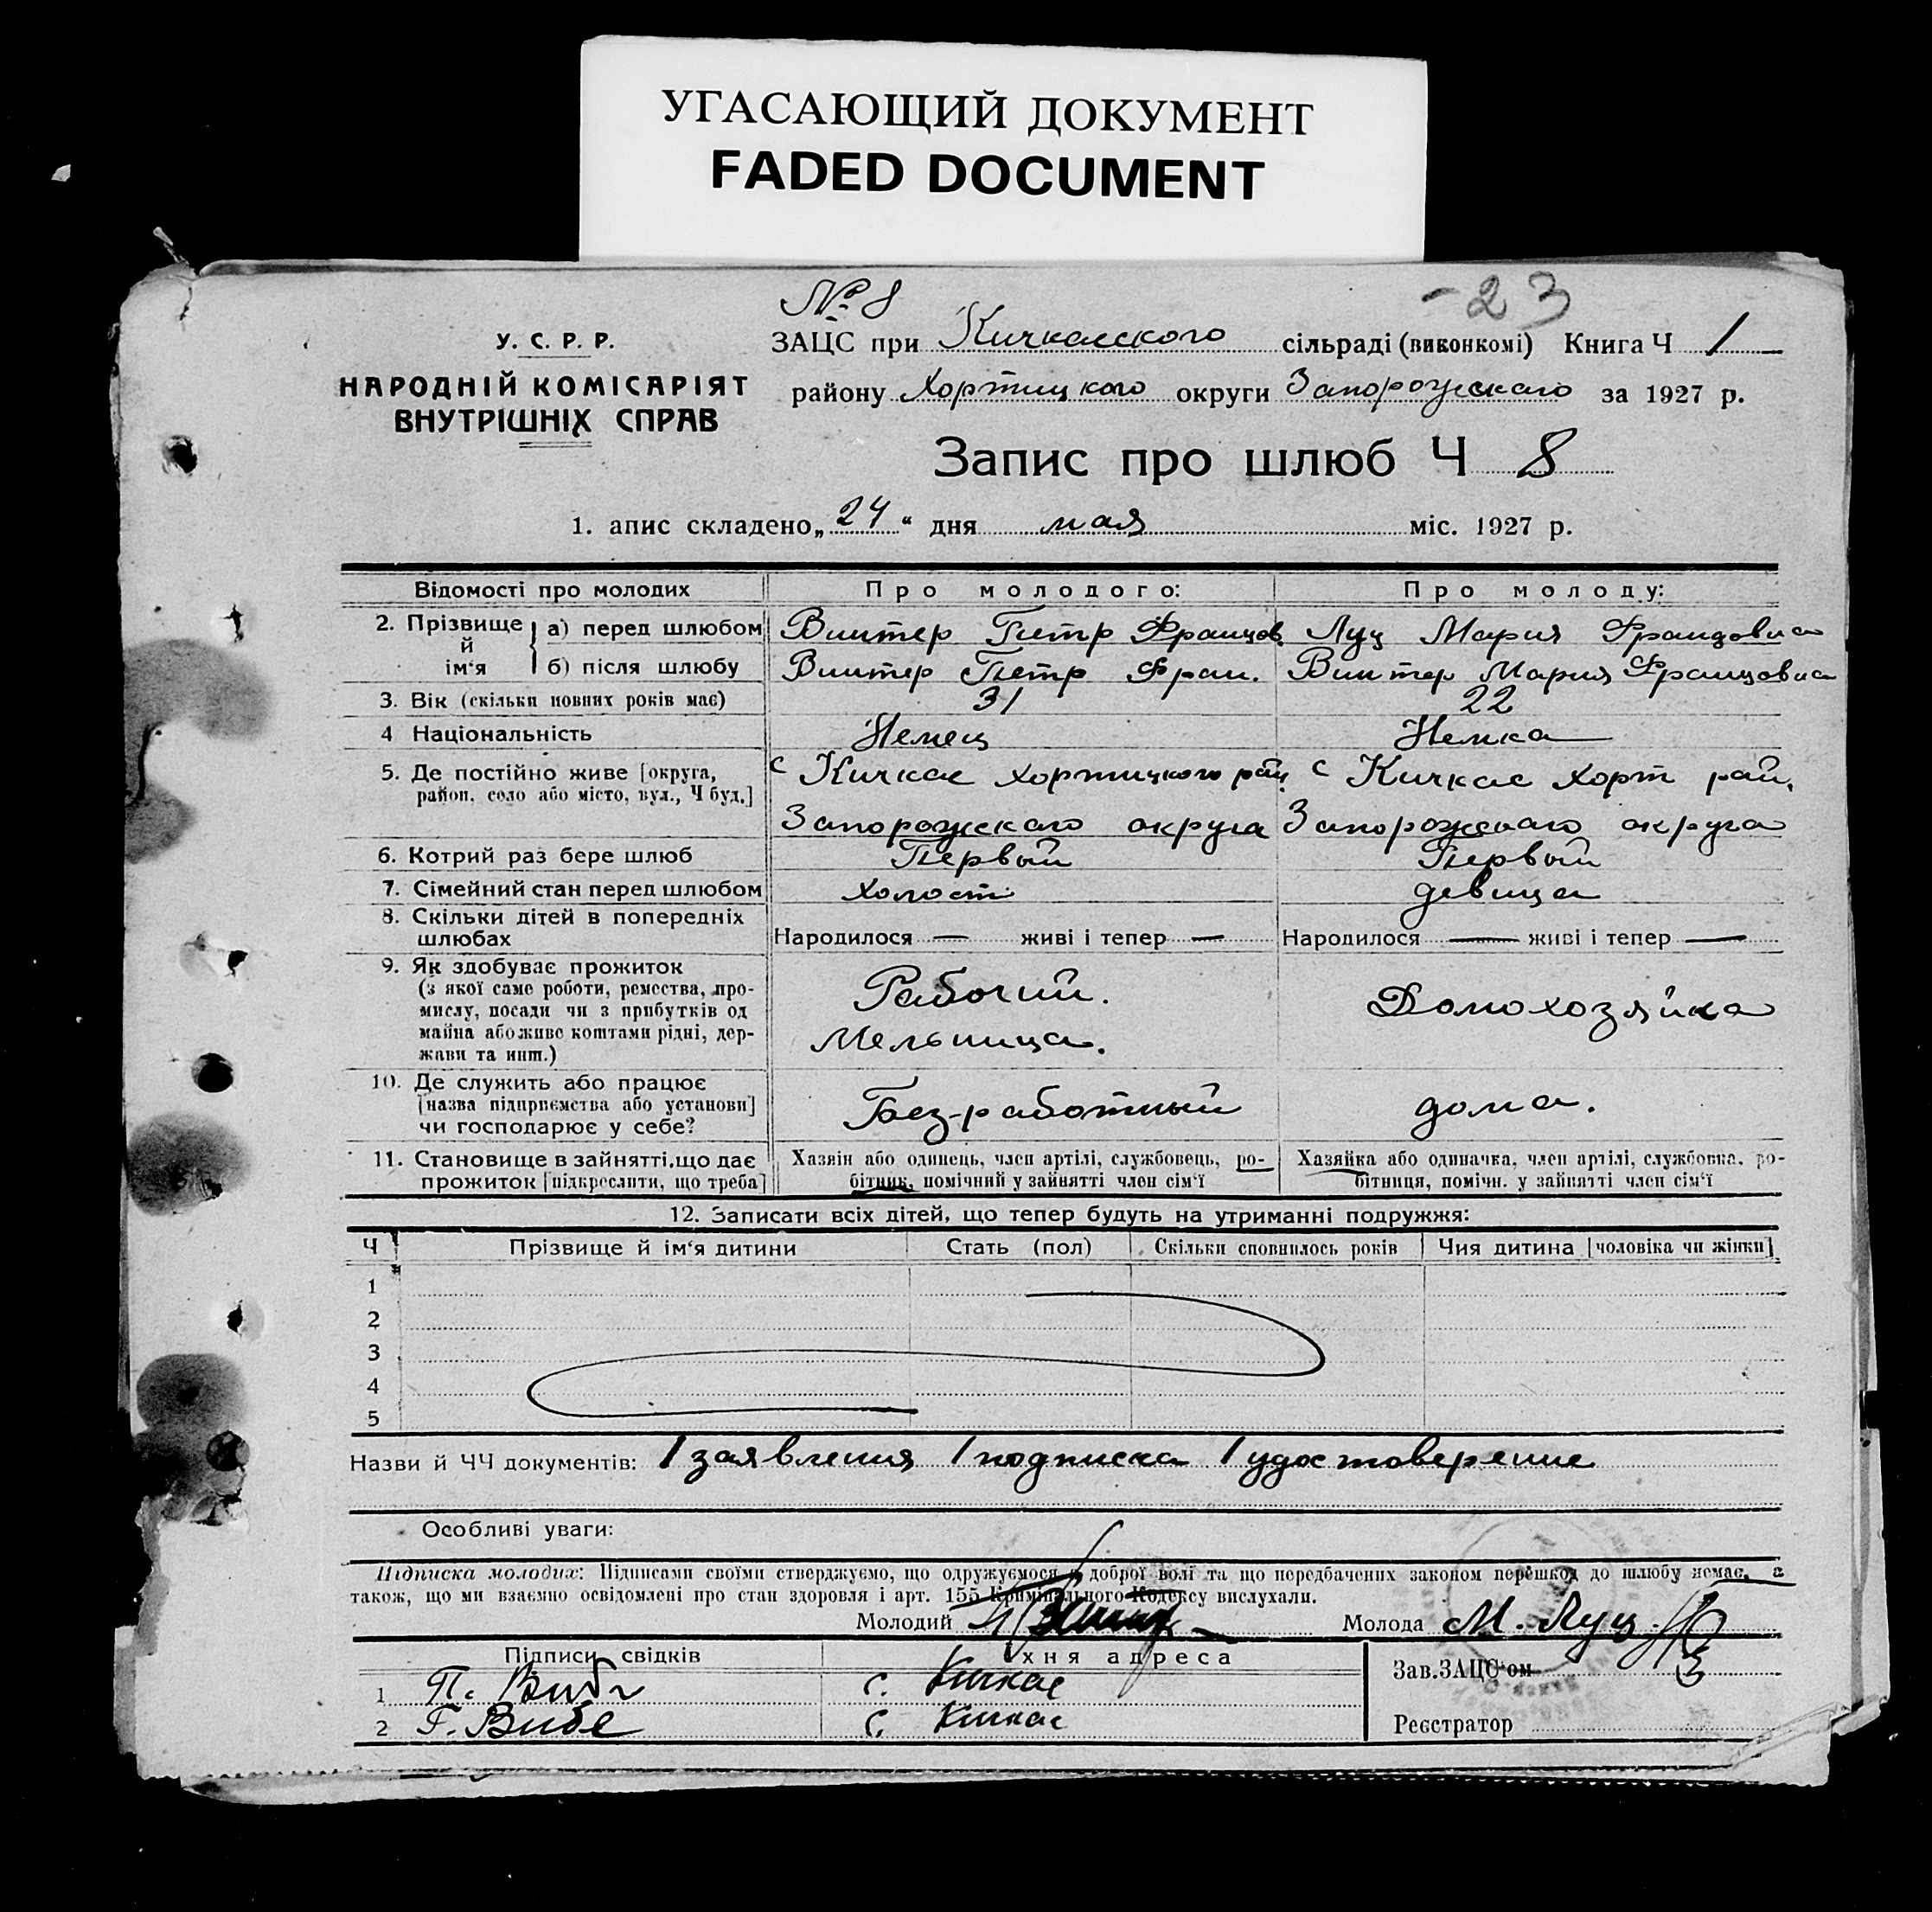 УГАСАЮЩИЙ ДОКУМЕНТ
FADED DOCUMENT
№ 8
-23
У. С. Р. Р.
НАРОДНІЙ КОМІСАРІЯТ
ВНУТРІШНІХ СПРАВ
ЗАЦС при Кичкасского сільраді (виконкомі) Книга Ч 1
району Хортицкого округи Запорожскаго за 1927 р.
Запис про шлюб Ч 8
1. апис складено „24“ дня мая міс. 1927 р.
Відомості про молодих Про молодого: Про молоду:
2. Прізвище й ім‘я
а) перед шлюбом Винтер Петр Францов Луц Мария Францовна
б) після шлюбу Винтер Петр Фран. Винтер Мария Францовна
3. Вік (скільки повних років має) 31 22
4 Національність Немец Немка
5. Де постійно живе [округа, с Кичкас Хортицкого рай. с Кичкас Хорт рай.
район, село або місто, вул., Ч буд.]
Запорожскаго округа Запорожскаго округа
6. Котрий раз бере шлюб Первый Первый
7. Сімейний стан перед шлюбом Холост девица
8. Скільки дітей в попередніх
шлюбах Народилося — живі і тепер — Народилося — живі і тепер —
9. Як здобуває прожиток
(з якої саме роботи, ремества, про- Рабочий. Домохозяйка
мислу, посади чи з прибутків од
майна або живе коштами рідні, дер- Мельница.
жави та инш.)
10. Де служить або працює
[назва підприємства або установи] Без-работный дома.
чи господарює у себе?
11. Становище в зайнятті, що дає Хазяін або одинець, член артілі, службовець, ро- Хазяйка або одиначка, член артілі, службовка, ро-
прожиток [підкреслити, що треба] бітник, помічний у зайнятті член сім‘ї бітниця, помічн. у зайнятті член сім‘ї
12. Записати всіх дітей, що тепер будуть на утриманні подружжя:
Ч Прізвище й ім‘я дитини Стать (пол) Скільки сповнилось років Чия дитина [чоловіка чи жінки]
1
2
3
4
5
Назви й ЧЧ документів: 1 заявления 1 подписка 1 удостоверение
Особливі уваги:
Підписка молодих: Підписами своїми стверджуємо, що одружуємося з доброї волі та що передбачених законом перешкод до шлюбу немає, а
також, що ми взаємно освідомлені про стан здоровля і арт. 155 Кримінального Кодексу вислухали.
Молодий Молода М. Луц
Підписи свідків хня адреса Зав. ЗАЦС‘ом
1 П. Вибе с. Кичкас
2 Г. Вибе с. Кичкас Реєстратор